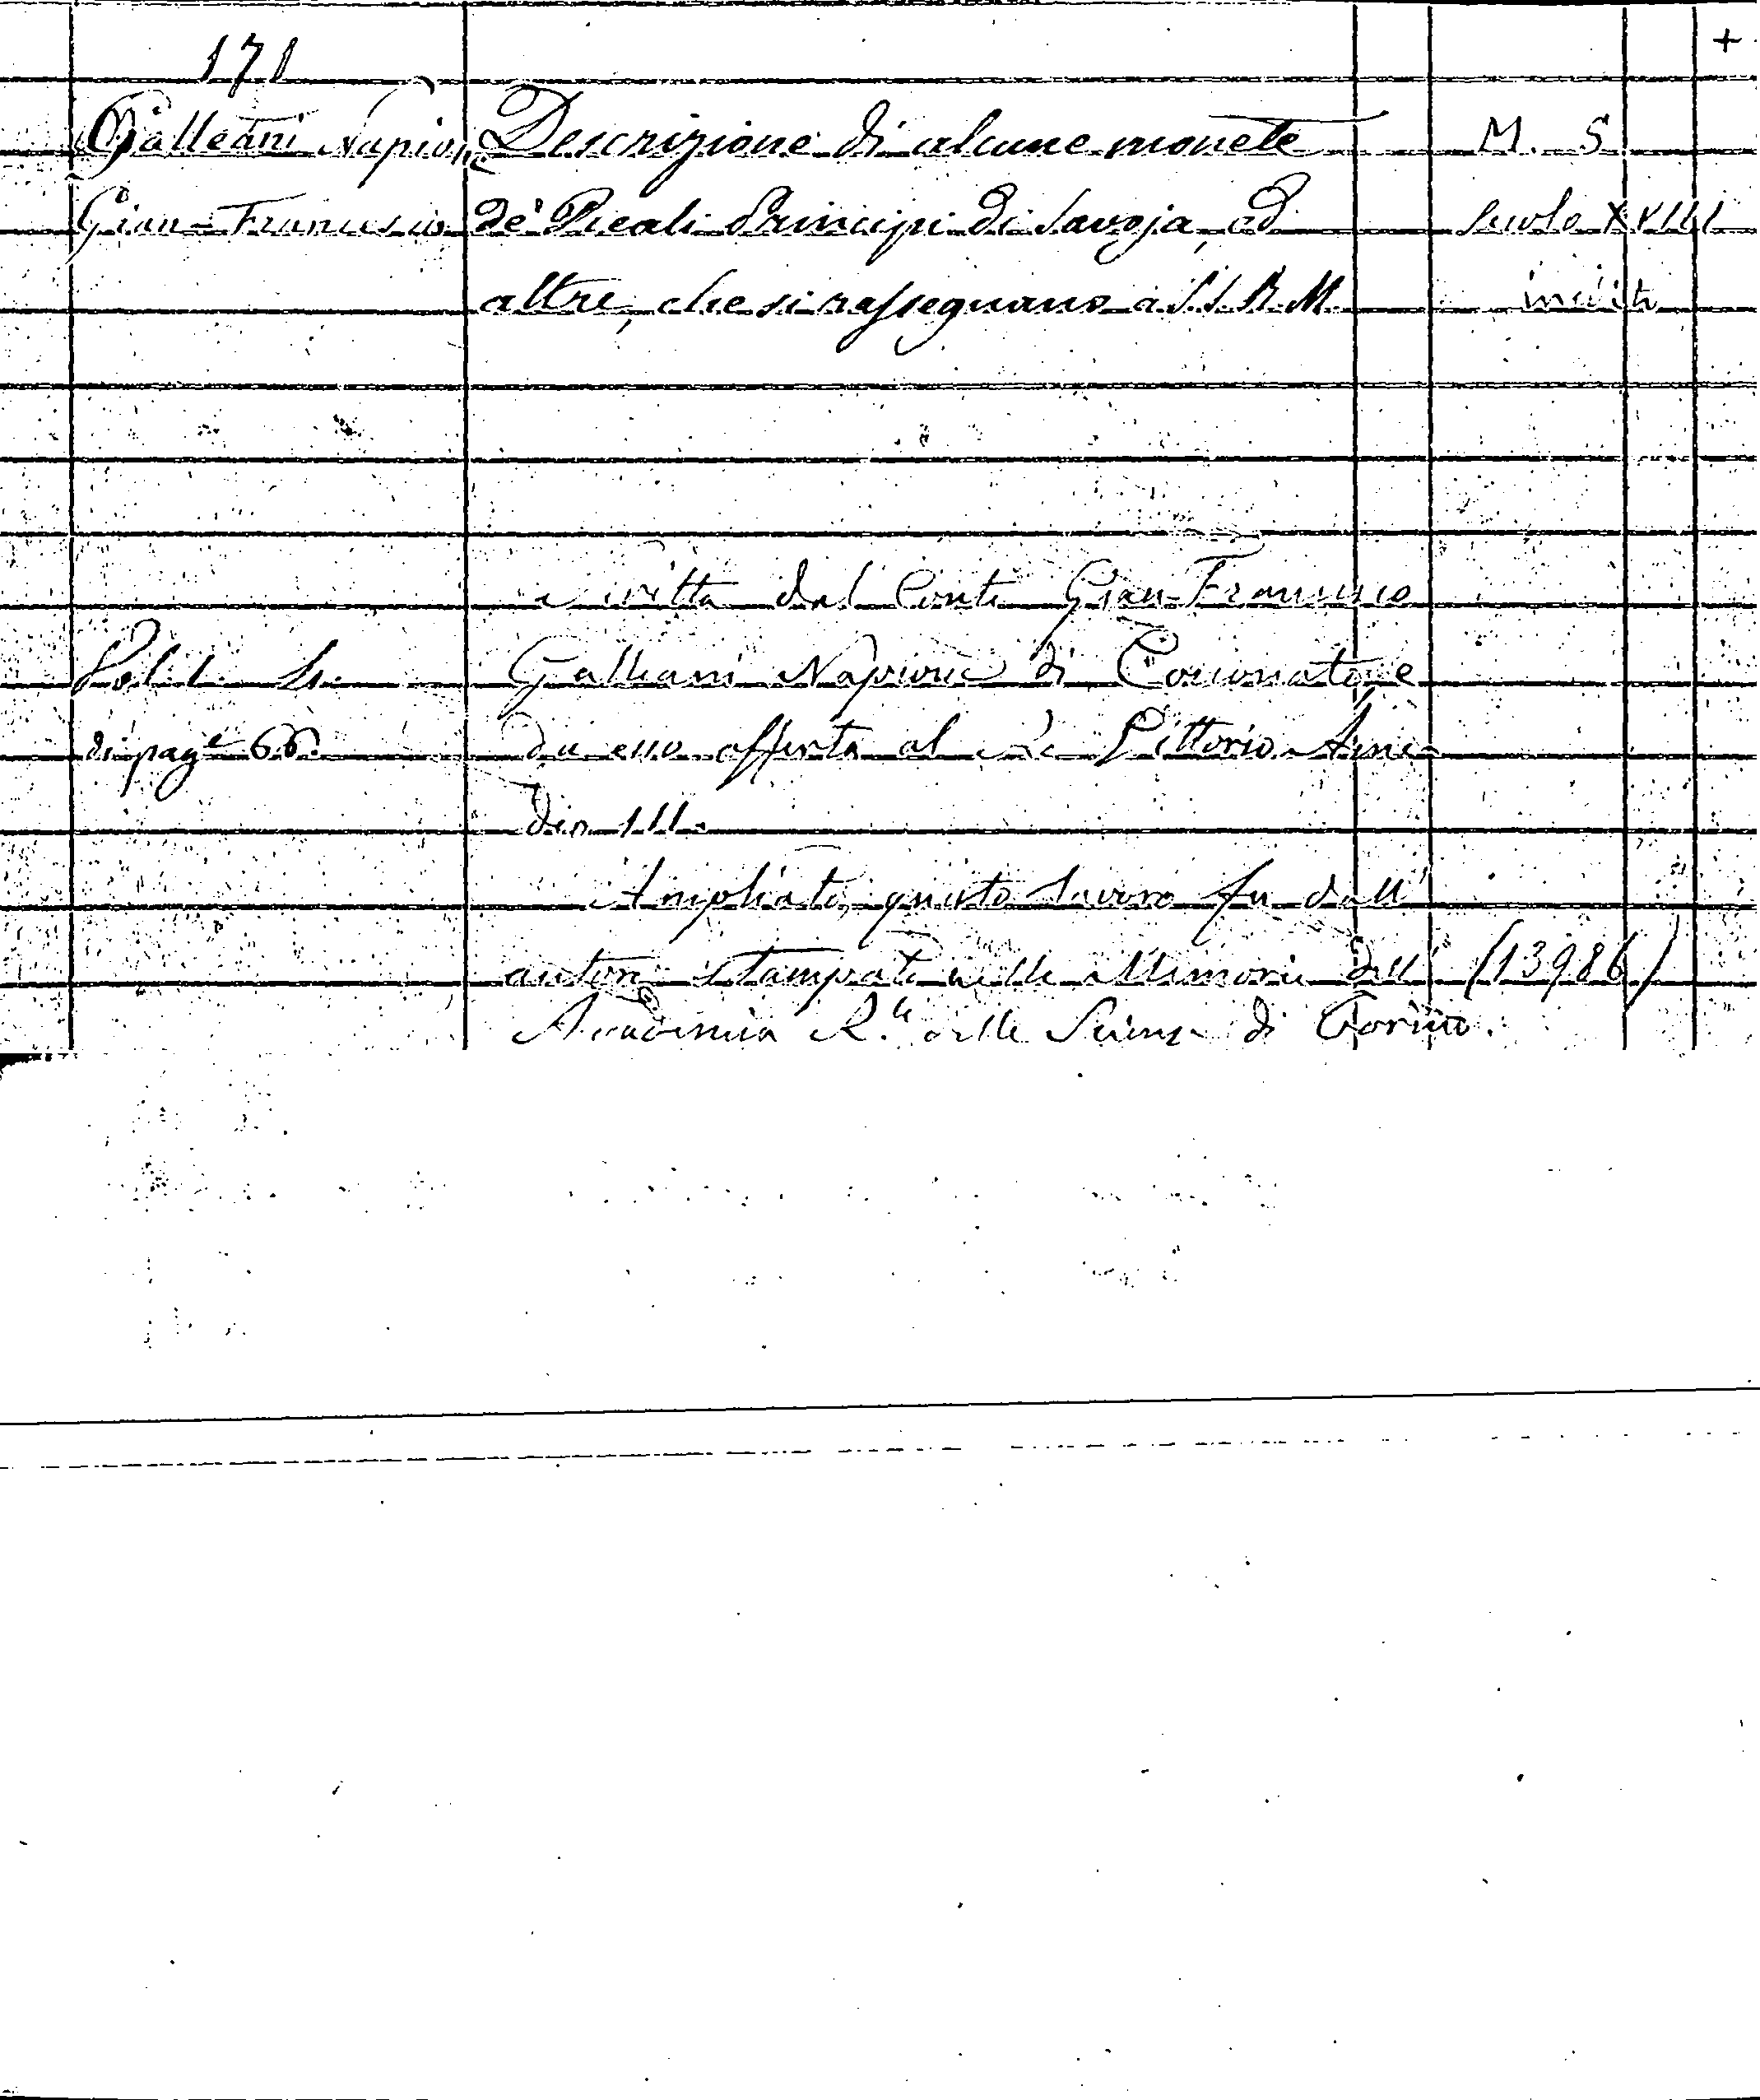 171 +
Galleani Napione Descrizione di alcune monete M. S.
Gian-Francesco de' Reali Principi di Savoja, ed Secolo XVIII
altre, che si rassegnano a S. S. R. M. inedito
scritta dal Conte Gian-Francesco
Vol. 1. Galleani Napione di Cocconato, e
di pag.e 66. da esso offerta al Re Vittorio Ame-
deo III.
Ampliato, questo lavoro fu dall'
autore stampato nelle Memorie dell' (13986)
Accademia R.le delle Scienze di Torino.